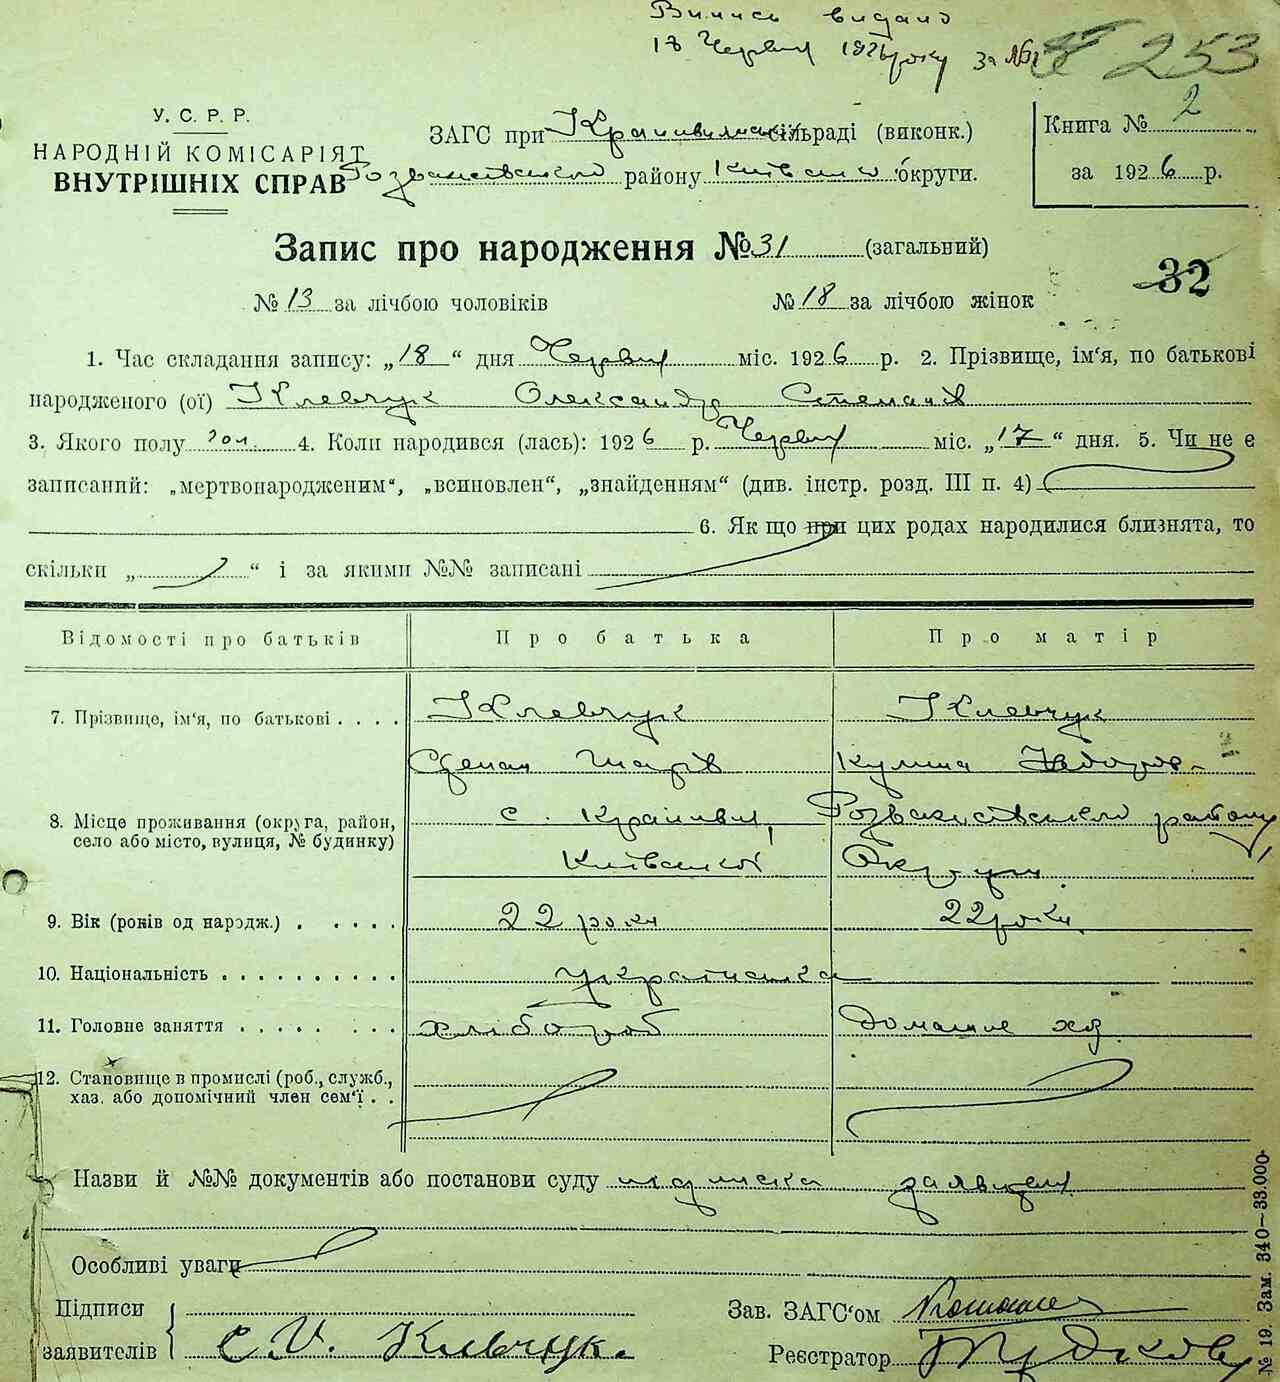 Випись видано
18 Червня 1926 року за №
253
У. С. Р. Р.
НАРОДНІЙ КОМІСАРІЯТ
ВНУТРІШНІХ СПРАВ
ЗАГС при сільраді (виконк.)
району Київської округи.
Книга № 2
за 1926 р.
Запис про народження № 31 (загальний)
32
№ 13 за лічбою чоловіків № 18 за лічбою жінок
1. Час складання запису: „18“ дня Червня міс. 1926 р. 2. Прізвище, ім'я, по батькові
народженого (ої) Клевчук Олександр Степанів
3. Якого полу чол. 4. Коли народився (лась): 1926 р. Червня міс. „17“ дня. 5. Чи не є
записаний: „мертвонародженим“, „всиновлен“, „знайденням“ (див. інстр. розд. III п. 4)
6. Як що при цих родах народилися близнята, то
скільки „ “ і за якими №№ записані
Відомості про батьків Про батька Про матір
7. Прізвище, ім'я, по батькові . . . . Клевчук Клевчук
Степан
8. Місце проживання (округа, район,
село або місто, вулиця, № будинку)
с. Крапивня, району,
Київської Округи.
9. Вік (років од народж.) . . . . . 22 роки 22 роки
10. Національність . . . . . . . . . . українська
11. Головне заняття . . . . . . . . хлібороб домашнє хоз.
12. Становище в промислі (роб., служб.,
хаз. або допомічний член сем'ї . .
Назви й №№ документів або постанови суду підписка заявителя
Особливі уваги
Підписи
заявителів
С. Клевчук.
Зав. ЗАГС'ом
Реєстратор
№ 19. Зам. 340—33.000.